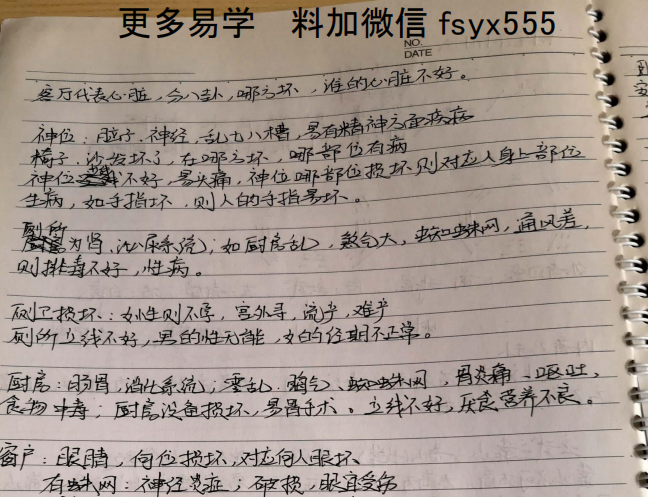 更多易学 料加微信 fsyx555
NO.
DATE
客厅代表心脏，分八卦，哪方坏，谁的心脏不好。
神位：脑子、神经，乱七八糟，易有精神方面疾病
椅子、沙发坏了，在哪方坏，哪部位有病
神位不好，易头痛，神位哪部位损坏则对应人身上部位
生病，如手指坏，则人的手指易坏。
厕所
为肾，泌尿系统；如厨房乱，氨气大，蜘蛛网，通风差，
则排毒不好，性病。
厕卫损坏：女性则不孕，宫外孕，流产，难产
厕所立线不好，男的性无能，女的经期不正常。
厨房：肠胃，消化系统；零乱、蜘蛛网，胃炎痛、呕吐，
食物中毒；厨房设备损坏，易胃手术。立线不好，厌食营养不良。
窗户：眼睛，何位损坏，对应何人眼坏
有蛛网：神经炎症；破损，眼宜受伤